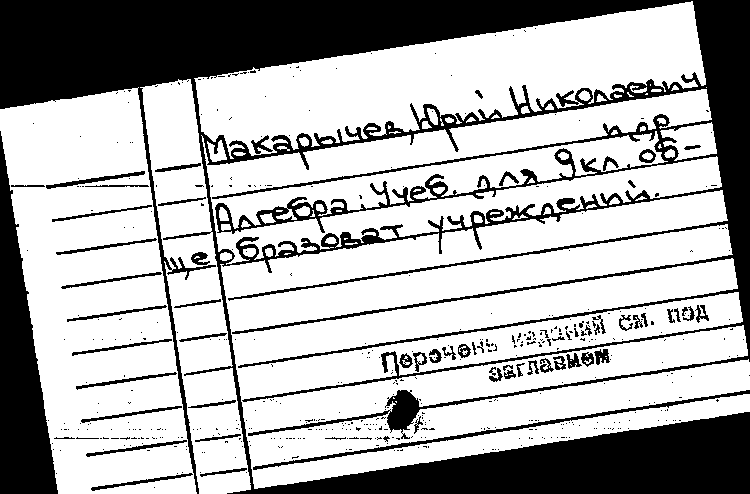 Макарычев, Юрий Николаевич
и др.
Алгебра: Учеб. для 9 кл. об-
щеобразоват. учреждений.
Перечень изданий см. под
заглавием